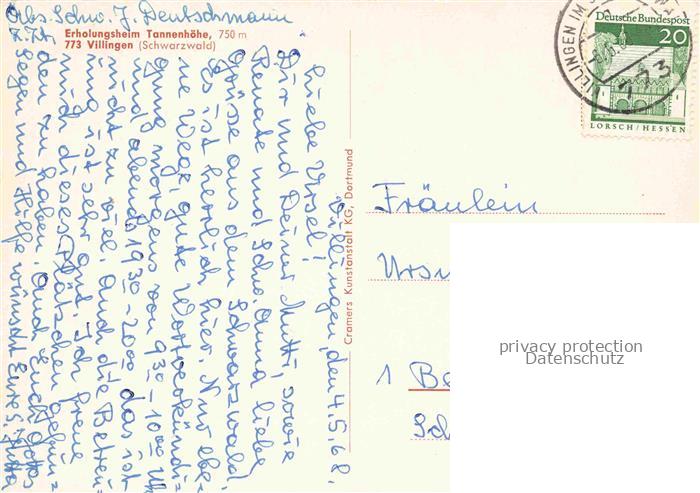 Abs. Schw. J. Deutschmann
z. Zt.
Erholungsheim Tannenhöhe, 750 m
773 Villingen (Schwarzwald)
Villingen, den 4.5.68.
Liebe Ursel!
Dir und Deiner Mutti, sowie
Renate und Schw. Anna liebe
Grüsse aus dem Schwarzwald.
Es ist herrlich hier. Nur ebe=
ne Wege, gute Wortverkündi=
gung morgens von 9 30 - 10 00 Uhr
und abends 19 30 - 20 00 das ist
nicht zu viel. Auch die Betreu=
ung ist sehr gut. Ich freue
mich dieses Plätzchen gefun=
den zu haben. Auch Euch Gottes
Segen und Hilfe wünscht Eure S. Jutta
Cramers Kunstanstalt KG, Dortmund
VILLINGEN IM
773
Deutsche Bundespost
20
LORSCH/HESSEN
Fräulein
Urs
1 Be
Sch
privacy protection
Datenschutz